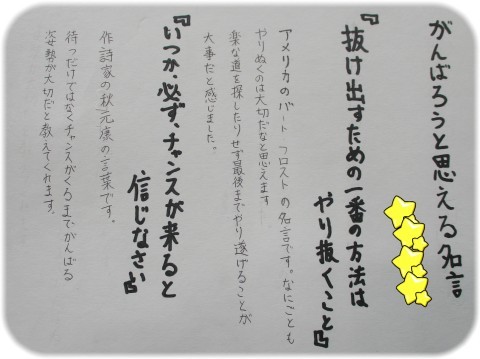 がんばろうと思える名言
『抜け出すための一番の方法は
やり抜くこと』
アメリカのバート フロストの名言です。なにごとも
やりぬくのは大切だなと思えます
楽な道を探したりせず最後までやり遂げることが
大事だと感じました。
『いつか、必ず、チャンスが来ると
信じなさい』
作詩家の秋元康の言葉です。
待つだけではなくチャンスがくるまでがんばる
姿勢が大切だと教えてくれます。